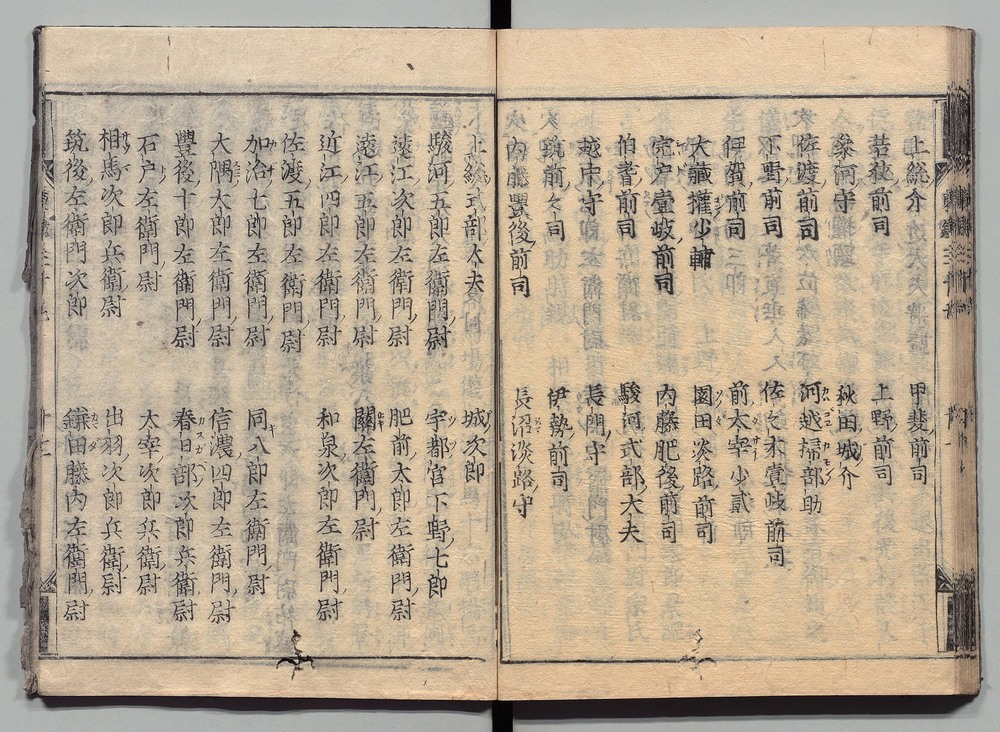 上総介 甲斐前司
若狭前司 上野前司
参河守 秋田城介
佐渡前司 河越掃部助
下野前司 佐々木壹岐前司
伊賀前司 前太宰少貳
大蔵權少輔 園田淡路前司
完戸壹岐前司 内藤肥後前司
伯耆前司 駿河式部大夫
越中守 長門守
筑前々司 伊勢前司
内藤豐後前司 長沼淡路守
上総式部大夫 城次郎
駿河五郎左衞門尉 宇都宮下野七郎
遠江次郎左衞門尉 肥前太郎左衞門尉
遠江五郎左衞門尉 關左衞門尉
近江四郎左衞門尉 和泉次郎左衞門尉
佐渡五郎左衞門尉
加治七郎左衞門尉 同八郎左衞門尉
大隅太郎左衞門尉 信濃四郎左衞門尉
豐後十郎左衞門尉 春日部次郎兵衞尉
石戸左衞門尉 太宰次郎兵衞尉
相馬次郎兵衞尉 出羽次郎兵衞尉
筑後左衞門次郎 鎌田藤内左衞門尉